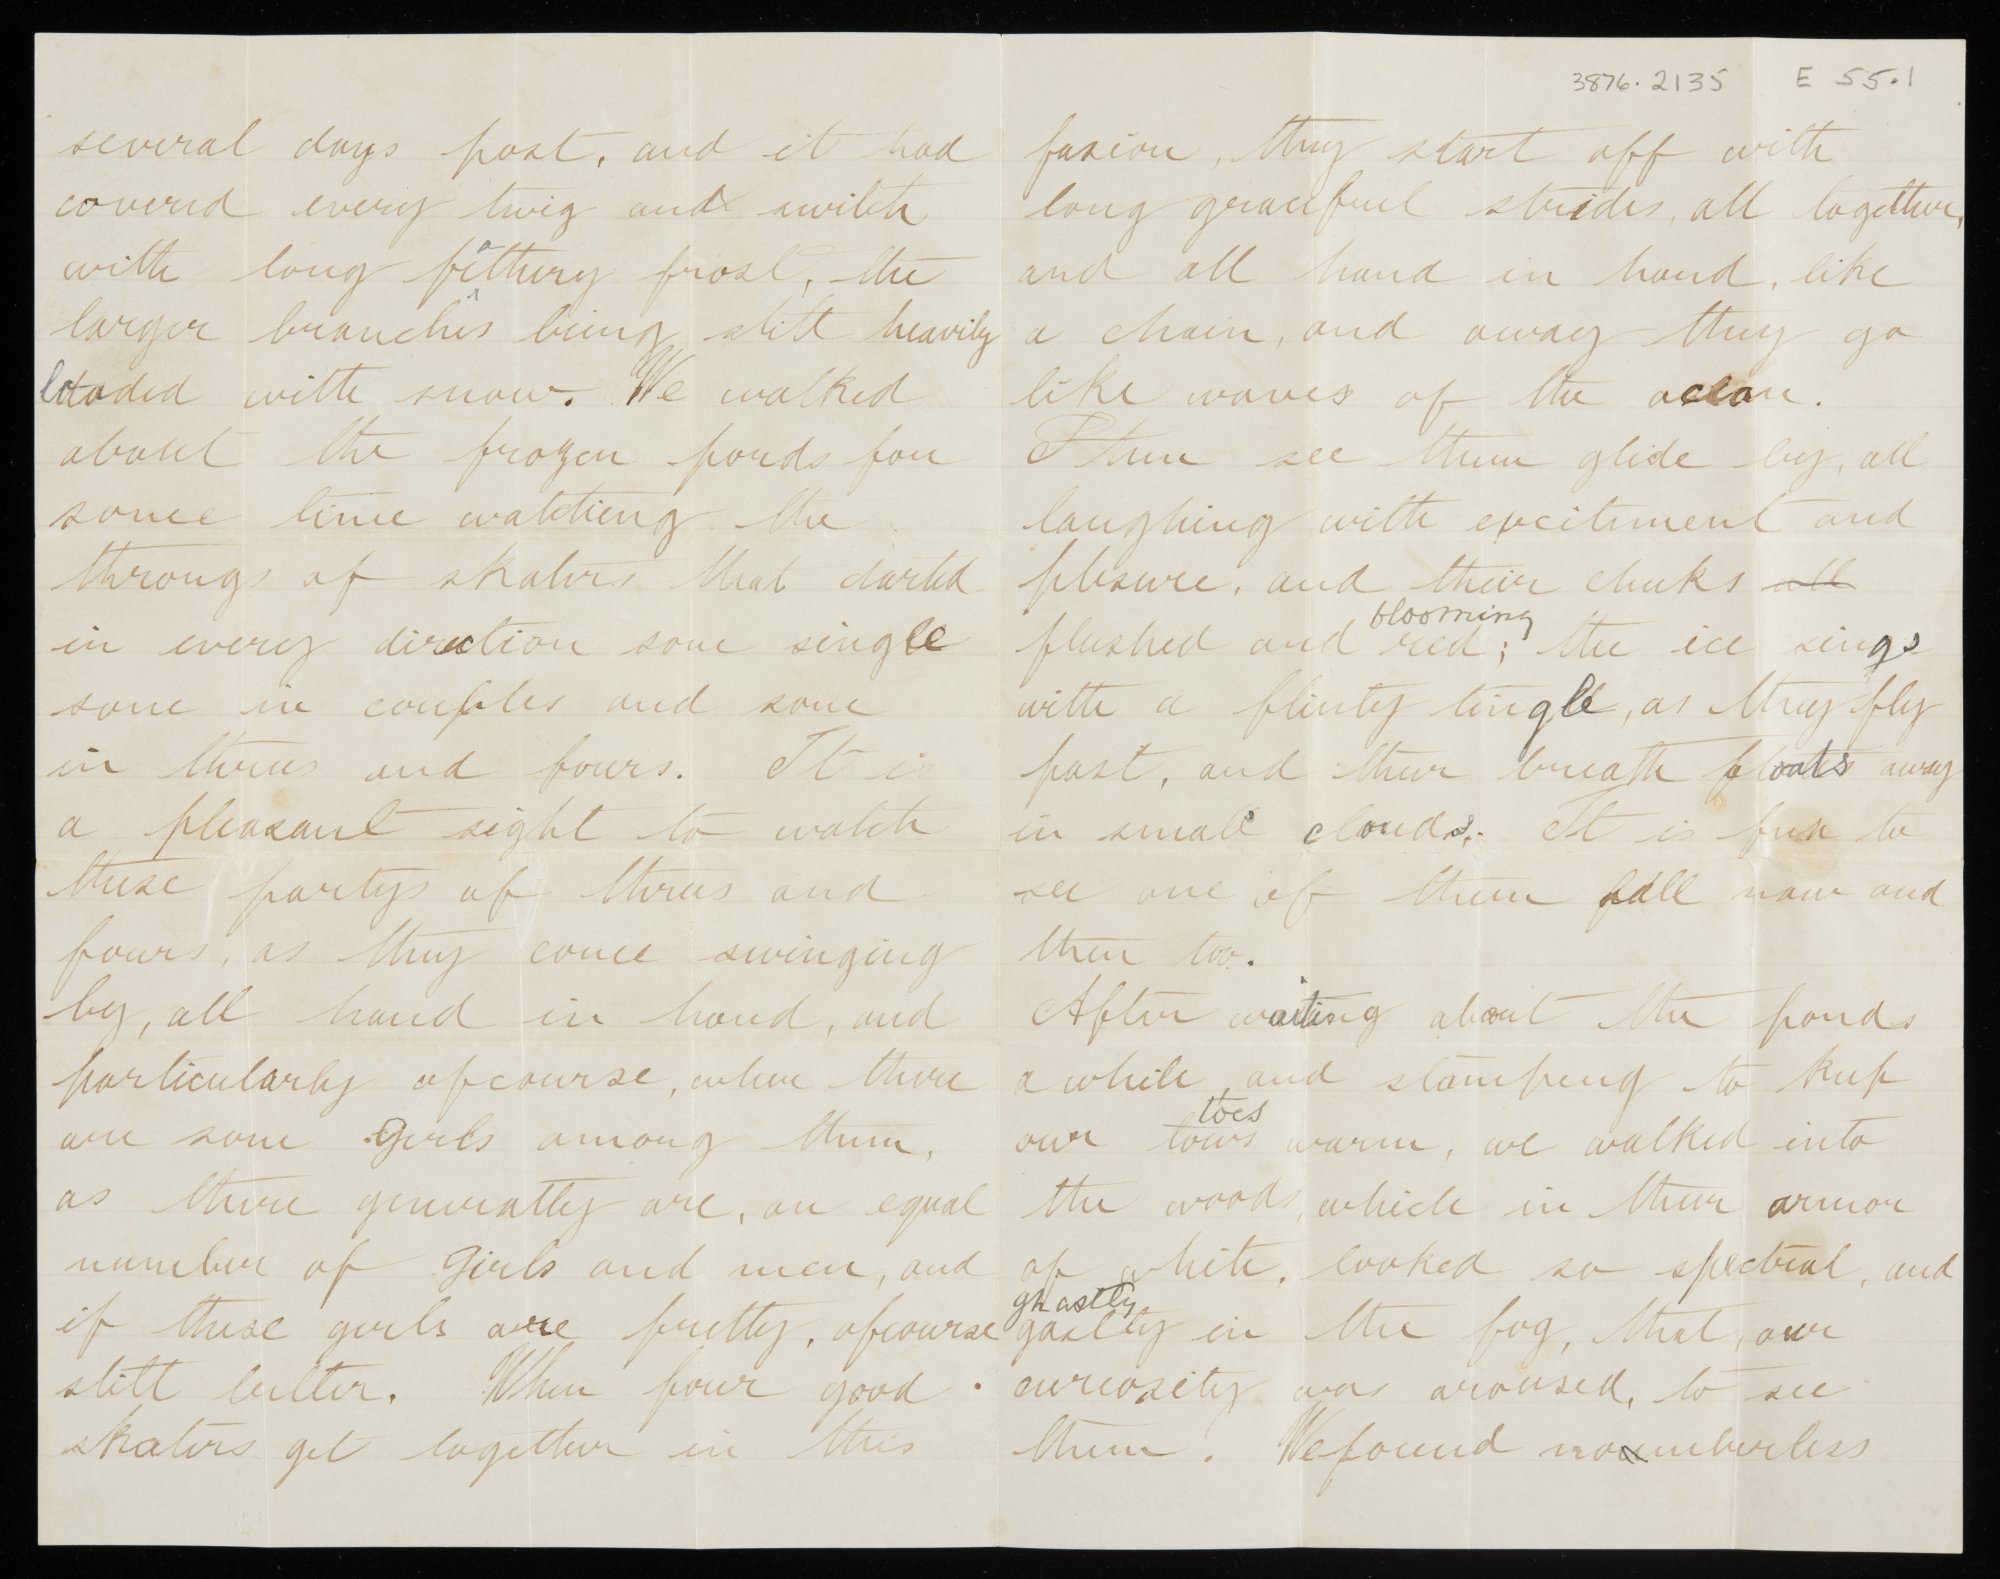 3876.2135 E 55.1
several days past, and it had
covered every twig and switch
with long feathery frost, the
larger branches being still heavily
loaded with snow. We walked
about the frozen ponds for
some time watching the
throngs of skaters that darted
in every direction some single
some in couples and some
in threes and fours. It is
a pleasant sight to watch
these partys of threes and
fours, as they come swinging
by, all hand in hand, and
particularly ofcourse, when there
are some girls among them,
as there generally are, an equal
number of girls and men, and
if these girls are pretty, ofcourse
still better. When four good
skaters get together in this
fasion, they start off with
long graceful strides, all together,
and all hand in hand, like
a chain, and away they go
like waves of the ocean.
I then see them glide by, all
laughing with excitement and
plesure, and their cheeks all
blooming
flushed and red; the ice sings
with a flinty tingle, as they fly
past, and their breath floats away
in small clouds. It is fun to
see one of them fall now and
then too.
After waiting about the ponds
awhile, and stamping to keep
toes
our tows warm, we walked into
the woods, which in their armor
of white, looked so spectral, and
ghastly
gastly in the fog, that, our
curiosity was aroused, to see
them. We found noumberless